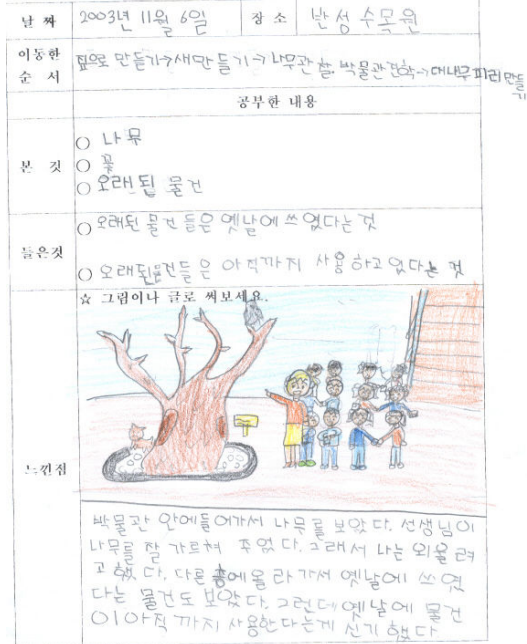 날짜 2003년 11월 6일 장소 반성수목원
이동한 순서 으로 만들기→새만들기→나무관찰, 박물관견학→대나무피리만들기
공부한 내용
본 것 ○ 나무
○ 꽃
○ 오래된 물건
들은것 ○ 오래된 물건들은 옛날에 쓰였다는 것
○ 오래된물건들은 아직까지 사용하고있다는 것
☆ 그림이나 글로 써보세요.
느낀점
박물관 안에들어가서 나무를 보았다. 선생님이
나무를 잘 가르쳐 주었다. 그래서 나는 외울려
고했다. 다른 층에올라가서 옛날에 쓰였
다는 물건도 보았다. 그런데 옛날에 물건
이아직까지 사용한다는게 신기했다